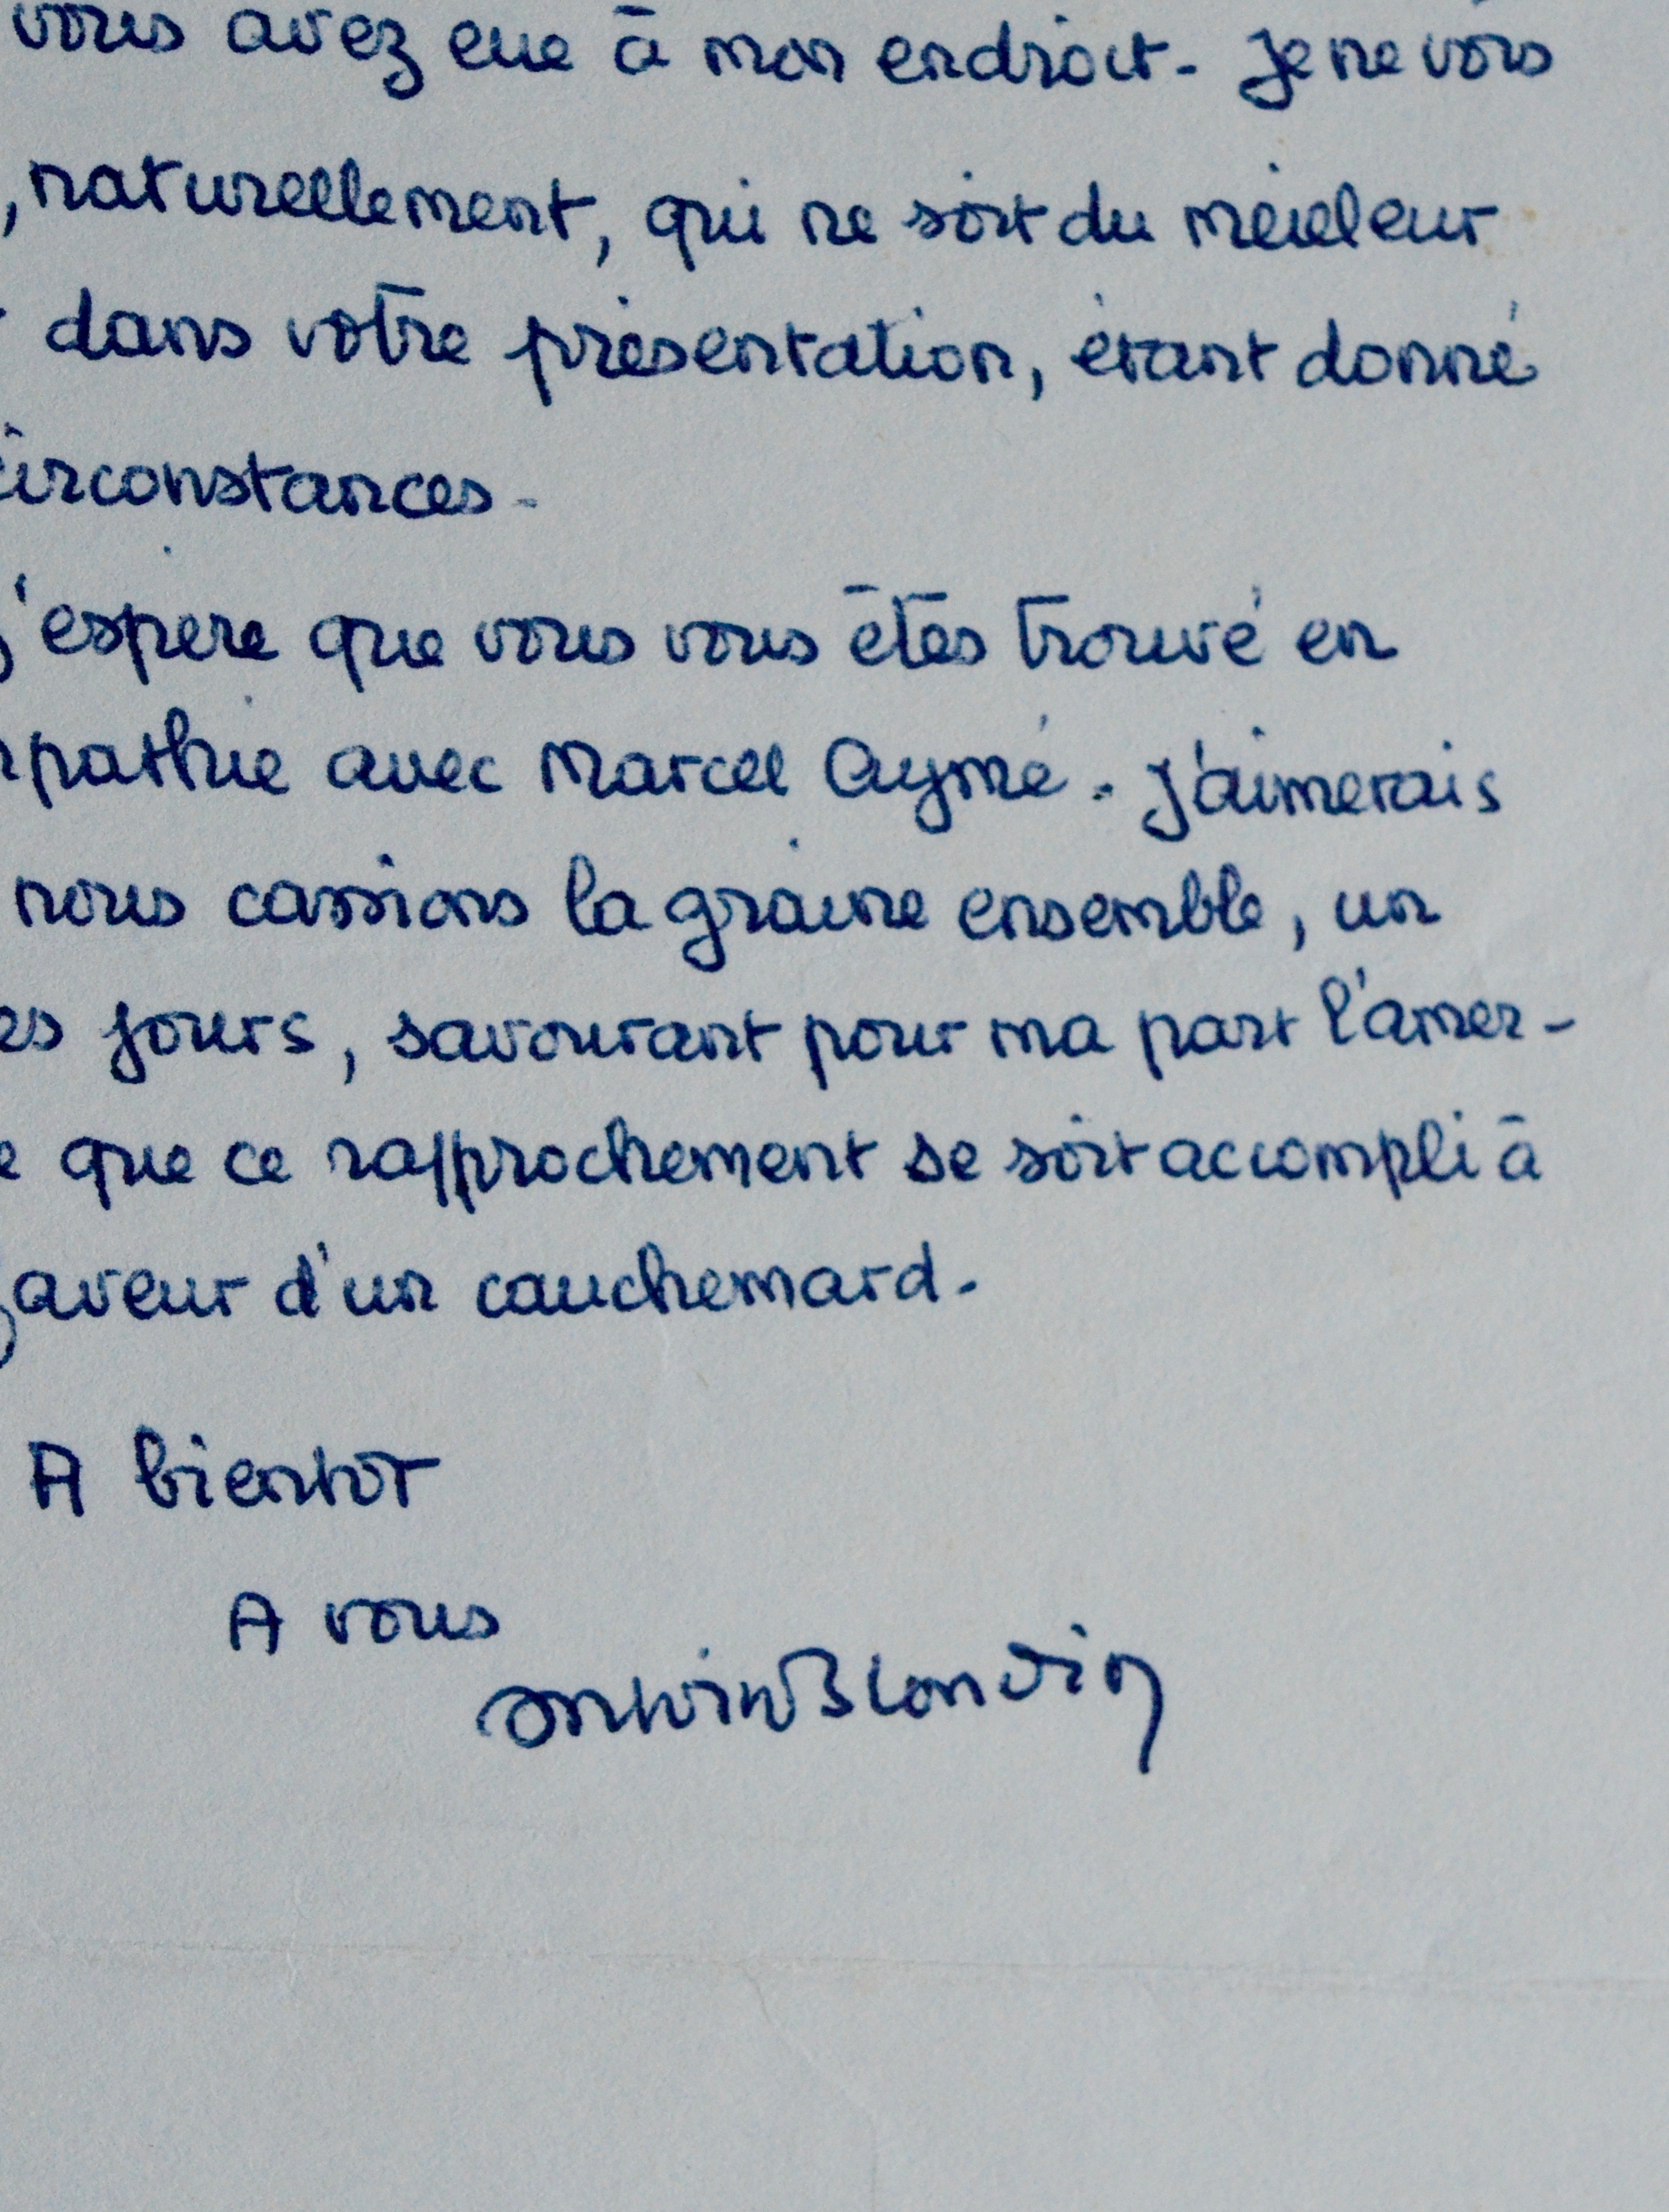 vous avez eue à mon endroit. Je ne vois
, naturellement, qui ne soit du meilleur
dans votre présentation, étant donné
circonstances.
j'espère que vous vous êtes trouvé en
pathie avec Marcel Aymé. J'aimerais
nous cassions la graine ensemble, un
es jours, savourant pour ma part l'amer-
e que ce rapprochement se soit accompli à
faveur d'un cauchemard.
A bientôt
A vous
Antoine Blondin